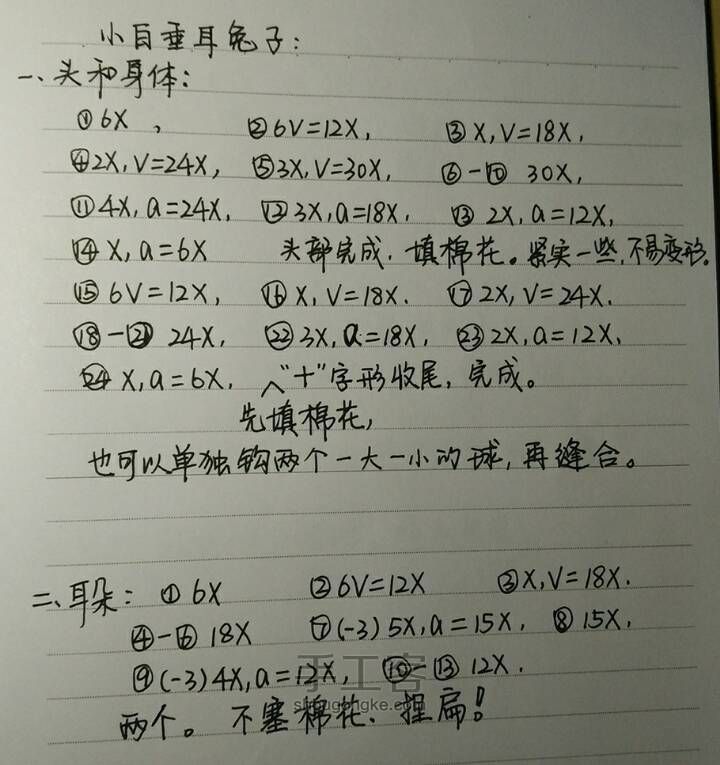 小白垂耳兔子:
一、头和身体:
①6X, ②6V=12X, ③X,V=18X,
④2X,V=24X, ⑤3X,V=30X, ⑥-⑩ 30X,
⑪4X,a=24X, ⑫3X,a=18X, ⑬ 2X,a=12X,
⑭X,a=6X 头部完成,填棉花。紧实一些,不易变形。
⑮6V=12X, ⑯X,V=18X. ⑰2X,V=24X.
⑱-㉑ 24X, ㉒3X,a=18X, ㉓2X,a=12X,
㉔X,a=6X, ^"十"字形收尾,完成。
先填棉花,
也可以单独钩两个一大一小的球,再缝合。
二、耳朵: ①6X ②6V=12X ③X,V=18X.
④-⑥ 18X ⑦(-3)5X,a=15X, ⑧15X,
⑨(-3)4X,a=12X, ⑩-⑬ 12X.
手工客
两个。不塞棉花、捏扁!